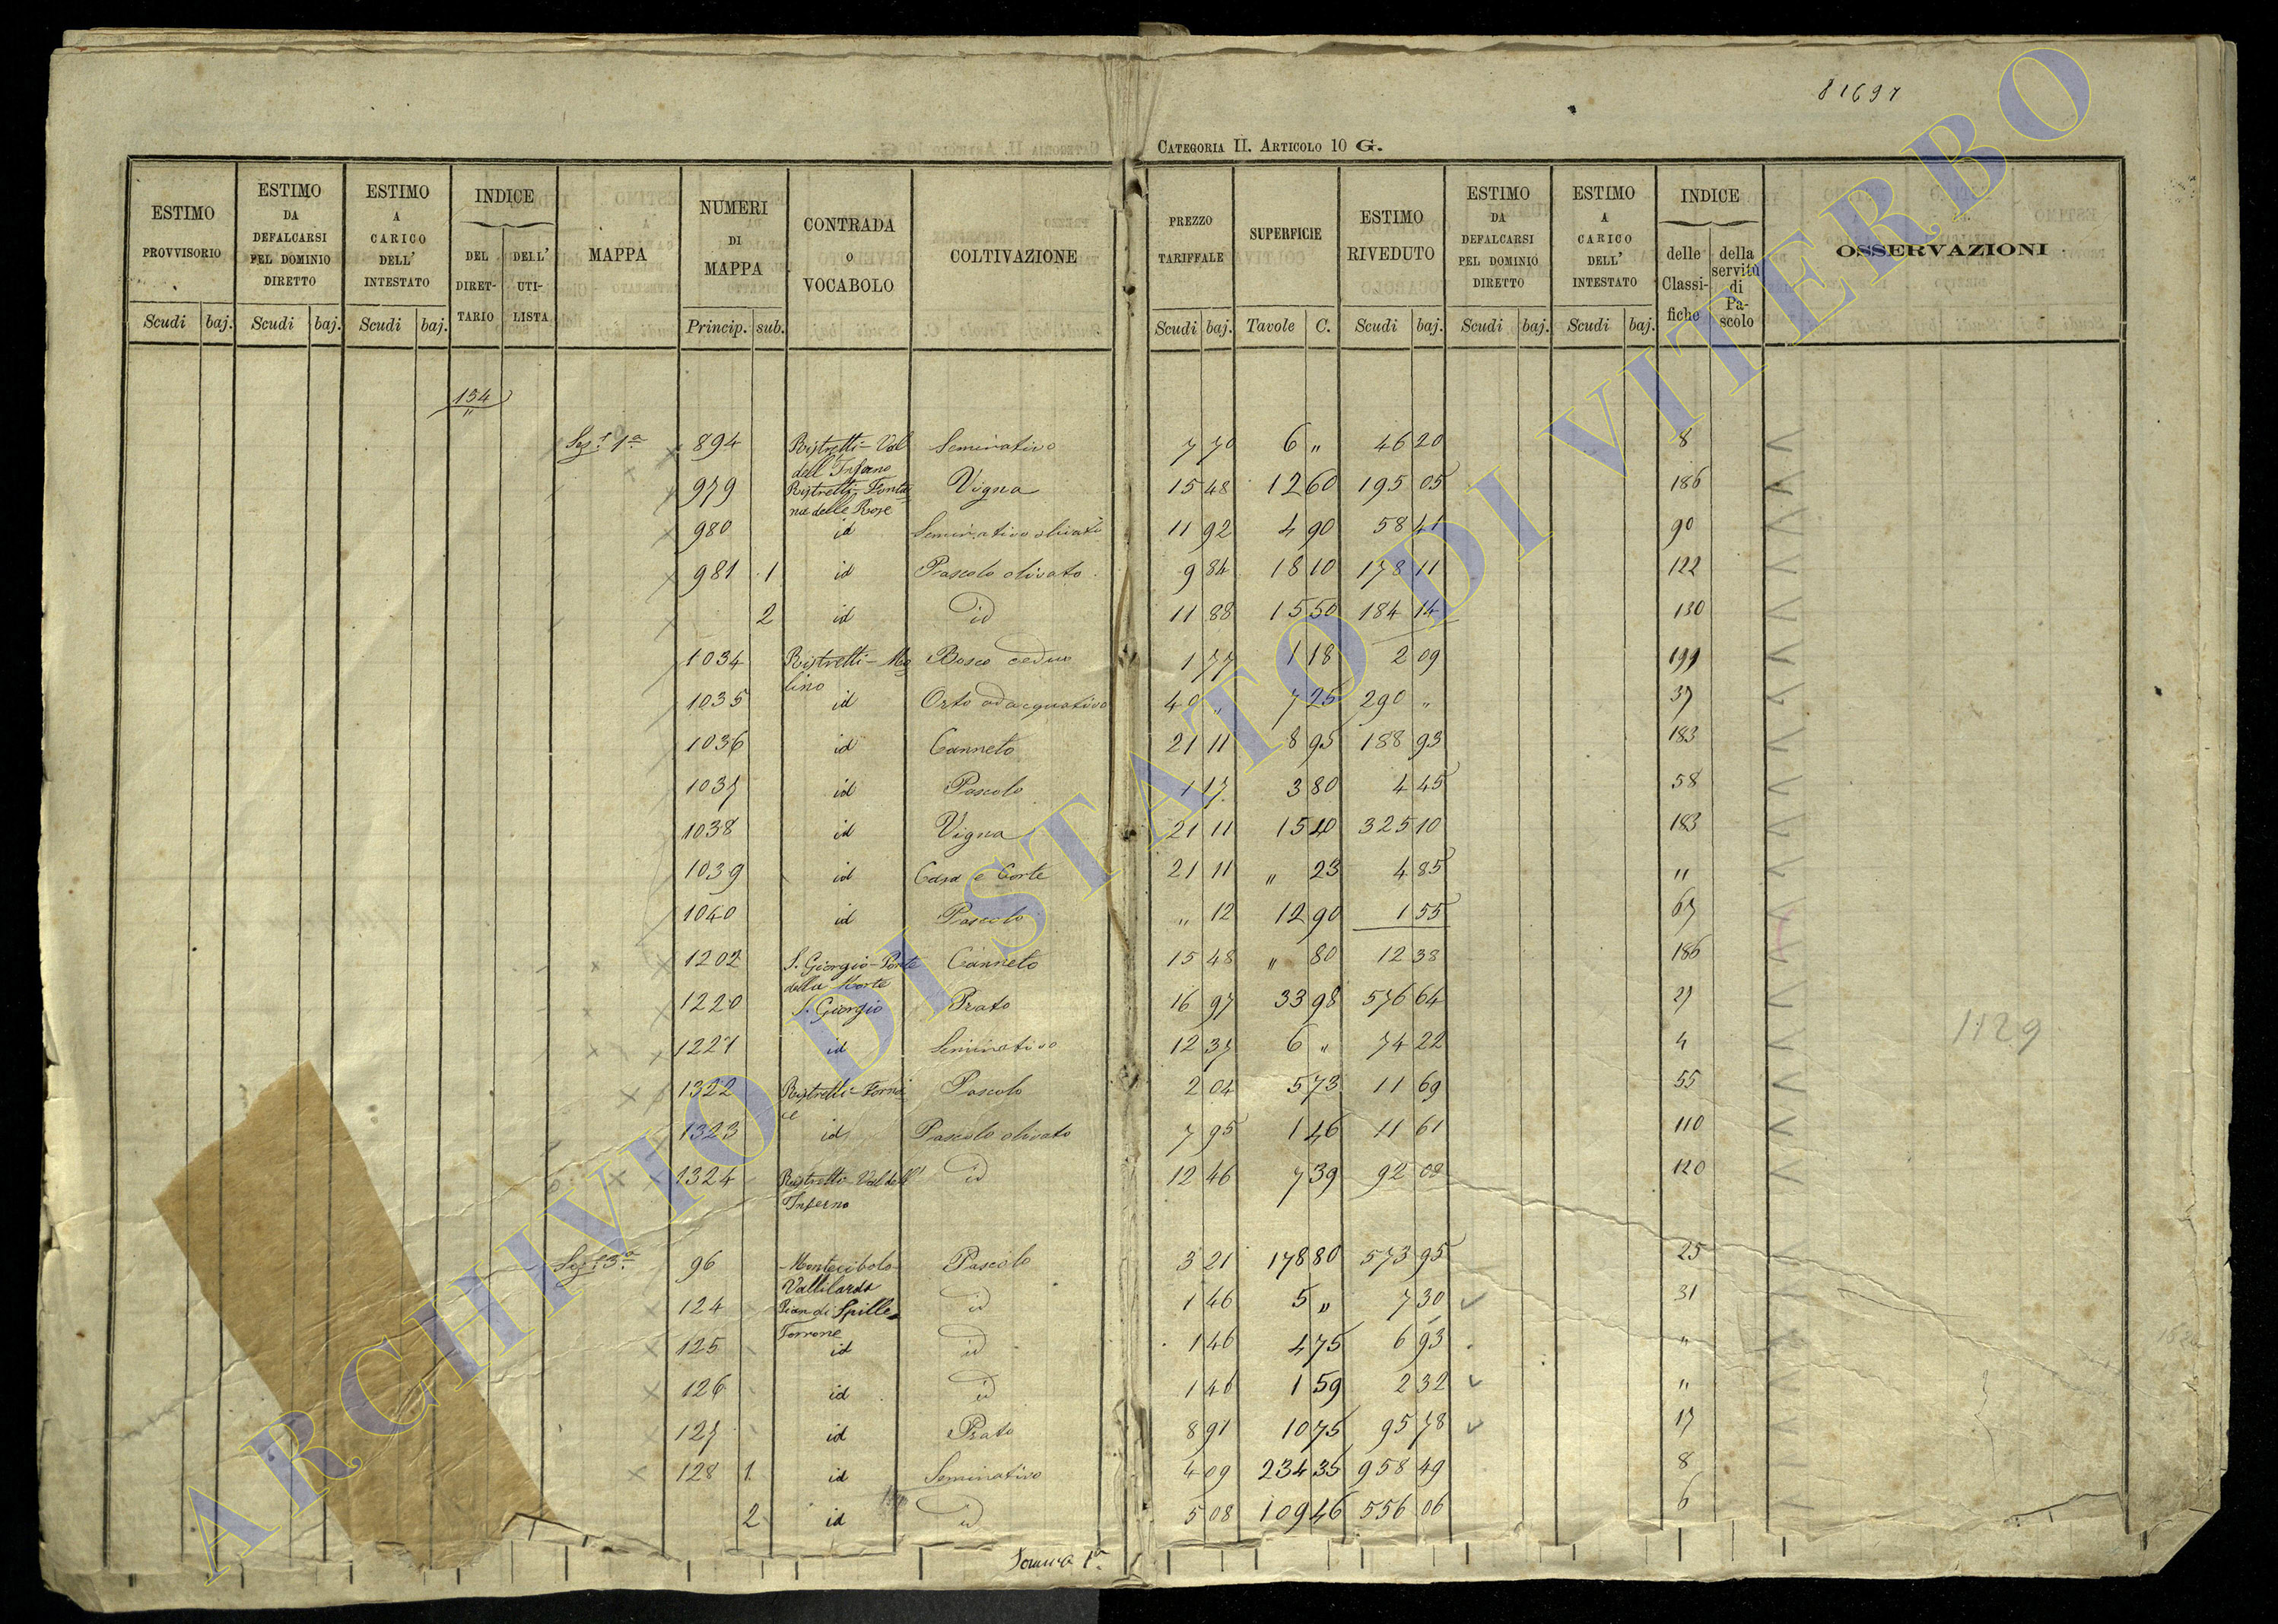 81697
CATEGORIA II. ARTICOLO 10 G.
ESTIMO PROVVISORIO Scudi baj.
ESTIMO DA DEFALCARSI PEL DOMINIO DIRETTO Scudi baj.
ESTIMO A CARICO DELL' INTESTATO Scudi baj.
INDICE DEL DIRET-TARIO DELL' UTI-LISTA
MAPPA
NUMERI DI MAPPA Princip. sub.
CONTRADA O VOCABOLO
COLTIVAZIONE
PREZZO TARIFFALE Scudi baj.
SUPERFICIE Tavole C.
ESTIMO RIVEDUTO Scudi baj.
ESTIMO DA DEFALCARSI PEL DOMINIO DIRETTO Scudi baj.
ESTIMO A CARICO DELL' INTESTATO Scudi baj.
INDICE delle Classi-fiche della servitù di Pa-scolo
OSSERVAZIONI
134
"
Sez.e 1a 894 Ristretti - Val dell'Inferno Seminativo 7 70 6 " 46 20 8
979 Ristretti - Fontana delle Rose Vigna 15 48 12 60 195 05 186
980 id Seminativo olivato 11 92 4 90 58 41 90
981 1 id Pascolo olivato 9 84 18 10 178 11 122
2 id id 11 88 15 50 184 14 130
1034 Ristretti - Molino Bosco ceduo 1 77 1 18 2 09 199
1035 id Orto adacquativo 40 " 7 25 290 " 37
1036 id Canneto 21 11 8 95 188 93 183
1037 id Pascolo 1 17 3 80 4 45 58
1038 id Vigna 21 11 15 40 325 10 183
1039 id Casa e Corte 21 11 " 23 4 85 "
1040 id Pascolo " 12 12 90 1 55 67
1202 S. Giorgio - Ponte della Morte Canneto 15 48 " 80 12 38 186
1220 S. Giorgio Prato 16 97 33 98 576 64 27
1227 id Seminativo 12 37 6 " 74 22 4
1129
1322 Ristretti - Fornace Pascolo 2 04 5 73 11 69 55
1323 id Pascolo olivato 7 95 1 46 11 61 110
1324 Ristretti - Val dell'Inferno id 12 46 7 39 92 08 120
Sez.e 3a 96 Montecibolo Vallilarda Pascolo 3 21 178 80 573 95 25
124 Pian di Spille Torrone id 1 46 5 " 7 30 31
125 id id 1 46 4 75 6 93 "
126 id id 1 46 1 59 2 32 "
127 id Prato 8 91 10 75 95 78 17
128 1 id Seminativo 4 09 234 35 958 49 8
2 id id 5 08 109 46 556 06 6
Somma 1a
ARCHIVIO DI STATO DI VITERBO